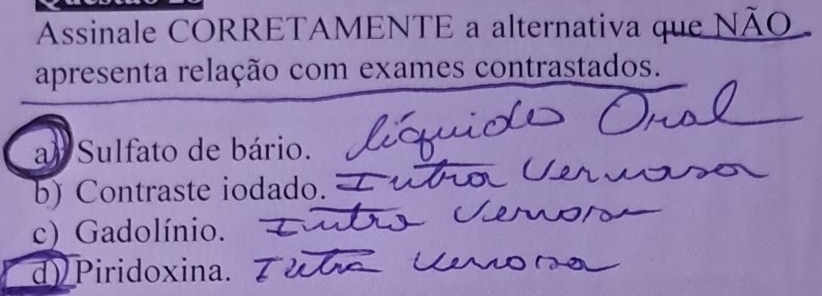 Assinale CORRETAMENTE a alternativa que NÃO
apresenta relação com exames contrastados.
a) Sulfato de bário. líquido Oral
b) Contraste iodado. Intra Venosa
c) Gadolínio. Intra Venosa
d) Piridoxina. Intra Venosa